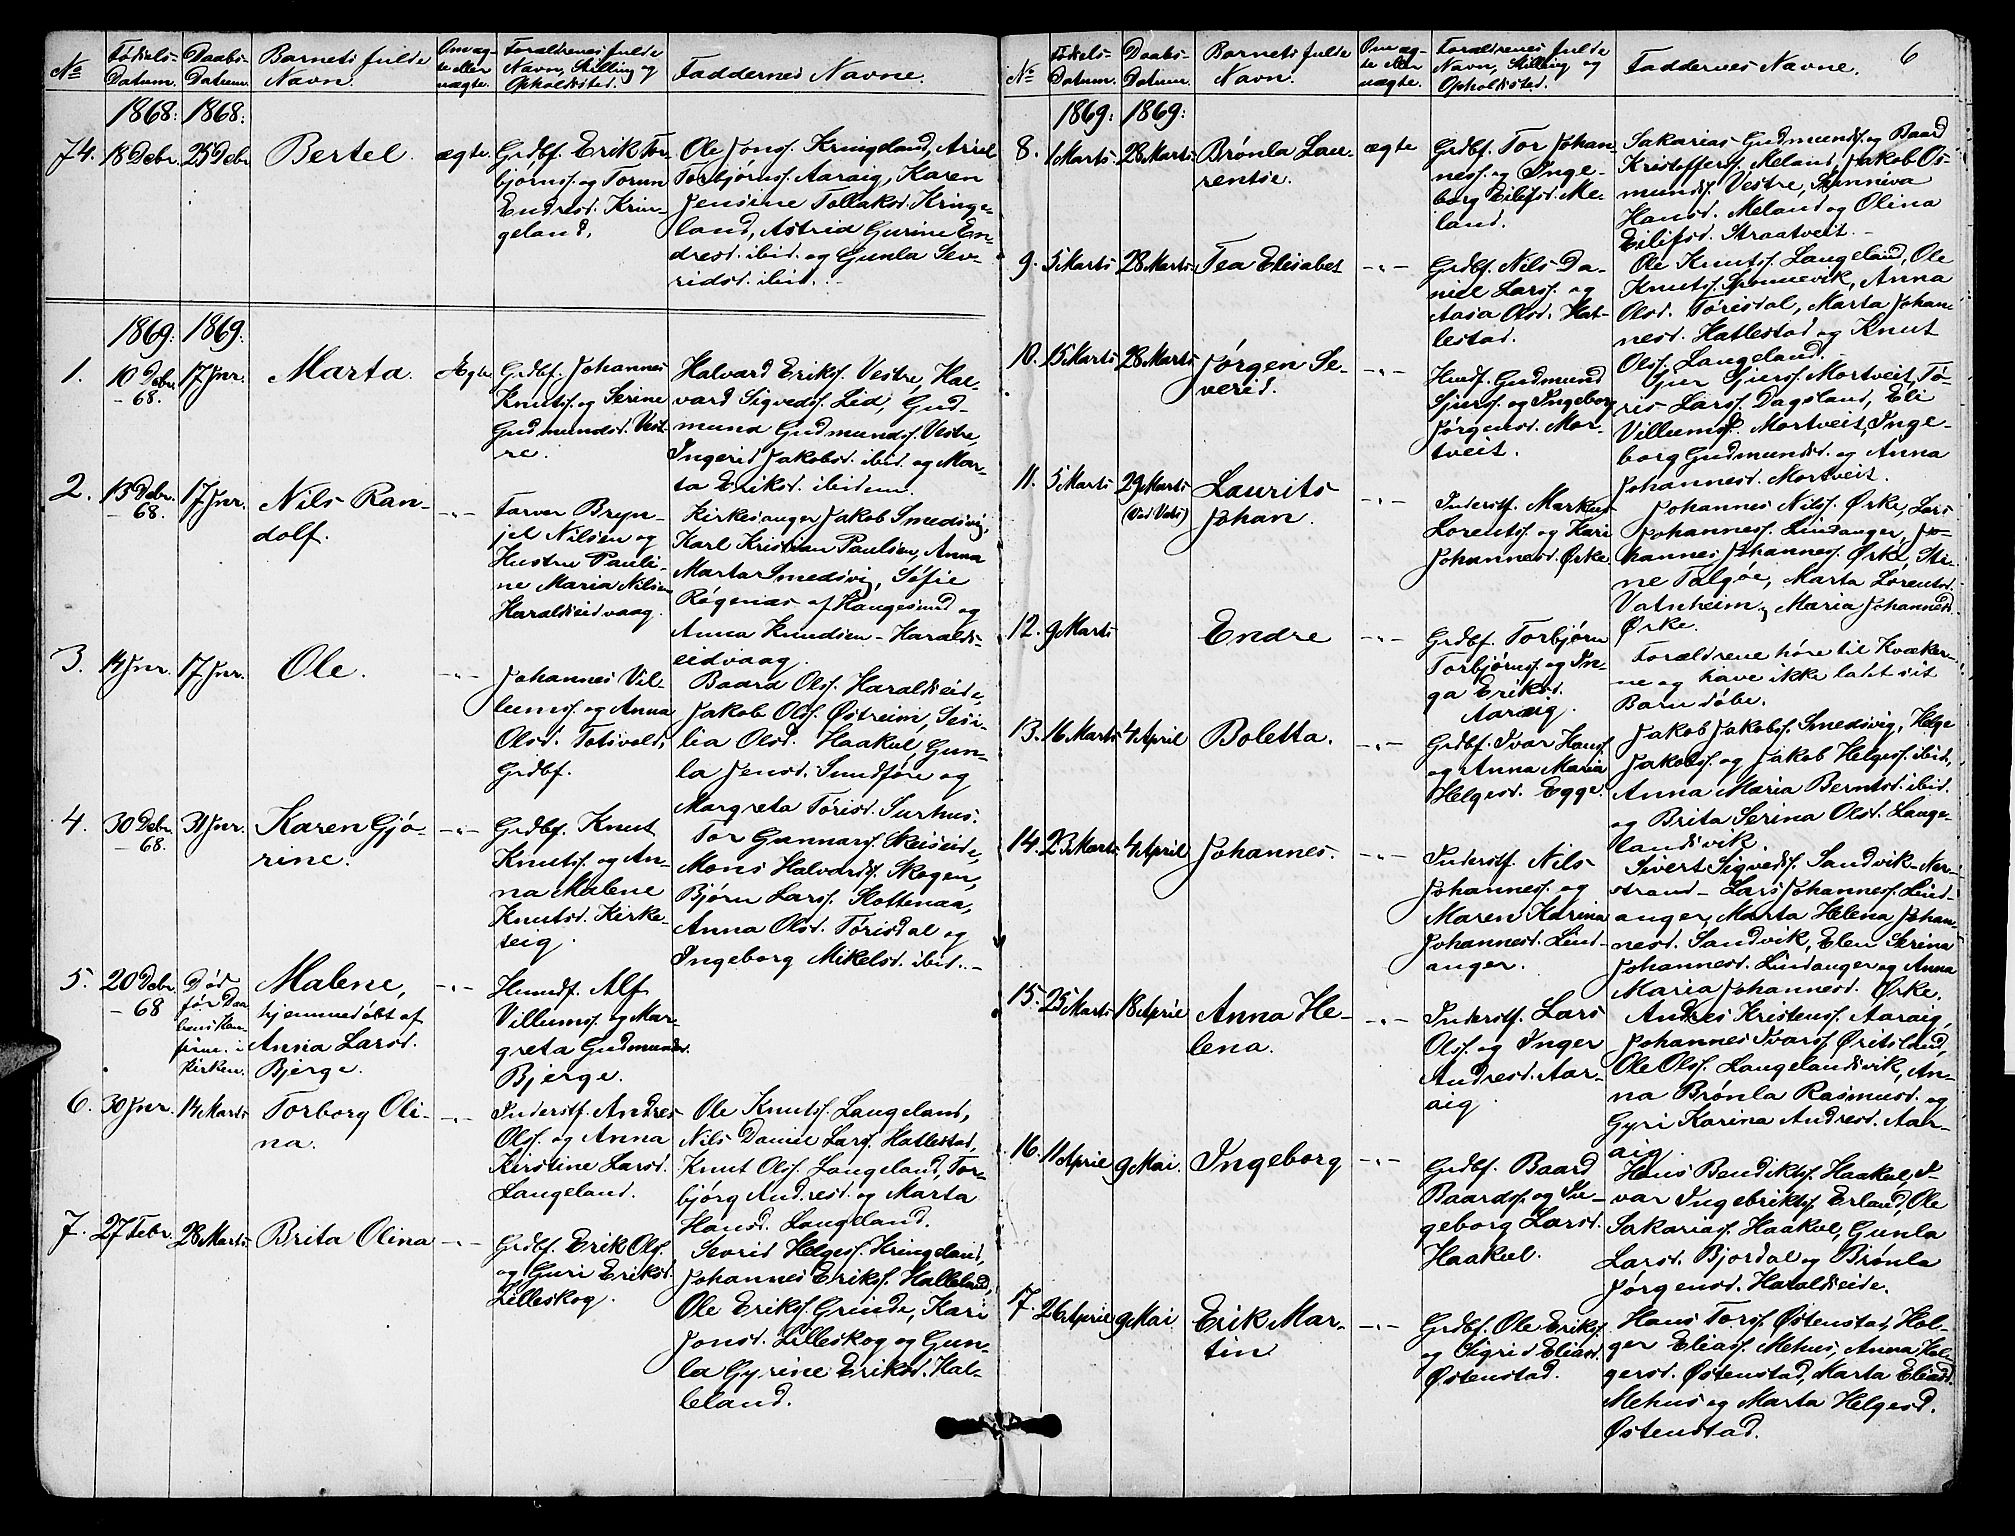 No
Fødsels-
Datum.
Daabs-
Datum.
Barnets fulde
Navn.
Om æg-
te eller
uægte.
Forældrenes fulde
Navn, Stilling og
Opholdssted.
Faddernes Navne.
1868: 1868:
74. 18 Debr. 25 Debr. Bertel. ægte.
Grdbf. Erik Tor-
bjørnss. og Torun
Endresd. Krin-
geland.
Ole Jonss. Kringeland,
Torbjørnss. Aaraig, Karen
Jensine Tollaksd. Kringe-
land, Astrid Gurine En-
dresd. ibid. og Gunla Sev-
ridsd. ibid.
1869: 1869:
1. 10 Debr. 68. 17 Jnr. Marta. Ægte
Grdbf. Johannes
Knutss. og Serine
Gudmundsd. Vest-
re.
Halvard Erikss. Vestre, Hal-
vard Sigvedss. Lid, Gud-
mund Gudmundss. Vestre,
Ingerid Jakobsd. ibid. og Mar-
ta Eriksd. ibidem.
2. 13 Debr. 68. 17 Jnr. Nils Ran-
dolf.
-"-
Farver Bryn-
jel Nilsen og
Hustru Pauli-
ne Maria Nilsen
Haraldseidvaag.
Kirkesanger Jakob Smedsvig,
Karl Kristian Paulsen, Anna
Marta Smedsvig, Sofie
Røgenæs af Haugesund og
Anna Knudsen - Haralds-
eidvaag.
3. 14 Jnr. 17 Jnr. Ole.
-"-
Johannes Vil-
lumss. og Anna
Olsd. Totsvold,
Grdbf.
Baard Olss. Haraldseide,
Jakob Olss. Østreim, Sesi-
lia Olsd. Haakul, Gun-
la Jensd. Sundføre og
Margreta Torisd. Surhus.
4. 30 Debr. 68. 31 Jnr. Karen Gjø-
rine.
-"-
Grdbf. Knut
Knutss. og An-
na Malene
Knutsd. Kirke-
teig.
Tor Gunnarss. Skeiseide,
Mons Halvardss. Skogen,
Bjørn Larss. Slottenaa,
Anna Olsd. Torisdal og
Ingeborg Mikelsd. ibid. -
5. 20 Debr. 68
Død
før Daa-
bens
i
Kirken.
Malene,
hjemmedøbt af
Anna Larsd.
Bjerge.
-"-
Husmdf. Alf
Villumss. og Mar-
greta Gudmundsd.
Bjerge.
6. 30 Jnr. 14 Marts Torborg Oli-
na.
-"-
Inderstf. Andres
Olss. og Anna
Kirstine Larsd.
Langeland.
Ole Knutss. Langeland,
Nils Daniel Larss. Hatlestad,
Knut Olss. Langeland, Tor-
bjørg Andresd. og Marta
Hansd. Langeland.
7. 27 Febr. 28 Marts. Brita Olina
-"-
Grdbf. Erik Olss.
og Guri Eriksd.
Lilleskog.
Sevrid Helgess. Kringeland,
Johannes Erikss. Halleland,
Ole Erikss. Grinde, Kari
Jonsd. Lilleskog og Gun-
la Gyrine Eriksd. Hal-
leland.
6
No
Fødsels-
Datum.
Daabs-
Datum.
Barnets fulde
Navn.
Om æg-
te eller
uægte.
Forældrenes fulde
Navn, Stilling og
Opholdssted.
Faddernes Navne.
1869: 1869:
8. 1 Marts 28 Marts Brønla Lau-
rentse.
ægte
Grdbf. Tor Johan-
ness. og Inge-
borg Eilifsd. Me-
land.
Sakarias Gudmundss. og Baard
Kristofferss. Meland, Jakob Os-
mundss. Vestre, Synneva
Hansd. Meland og Olina
Eilifsd. Straatveit. -
9. 5 Marts 28 Marts Tea Elisabet
-"-
Grdbf. Nils Da-
niel Larss. og
Aasa Olsd. Hat-
lestad.
Ole Knutss. Langeland, Ole
Knutss. Sponnevik, Anna
Olsd. Torisdal, Marta Johan-
nesd. Hatlestad og Knut
Olss. Langeland. -
10. 15 Marts 28 Marts Jørgen Se-
verid.
-"-
Husmf. Gudmund
Sjurss. og Ingeborg
Jørgensd. Mor-
tveit.
Sjur Sjurss. Mortveit, To-
ris Larss. Dagsland, Eli
Villumsd. Mortveit, Inge-
borg Gudmundsd. og Anna
Johannesd. Mortveit.
11. 5 Marts 29 Marts
(Ved Vats)
Laurits
Johan.
-"-
Inderstf. Markus
Lorentss. og Kari
Johannesd. Ørke
Johannes Nilss. Ørke, Lars
Johanness. Lindanger, Jo-
hannes Johanness. Ørke, Sti-
ne Talgøe, Marta Lorentsd.
Vatsheim, Maria Johannesd.
Ørke.
12. 9 Marts Endre
-"-
Grdbf. Torbjørn
Torbjørnss. og In-
ga Eriksd.
Aaraig.
Forældrene høre til Kvæker-
ne og have ikke ladet sit
Barn døbe.
13. 16 Marts 4 April Boletta.
-"-
Grdbf. Ivar Hanss.
og Anna Maria
Helgesd. Egge.
Jakob Jakobss. Smedsvig, Helge
Jakobss. og Jakob Helgess. ibid,
Anna Maria Berntsd. ibid.
og Brita Serina Olsd. Lange-
landsvik.
14. 23 Marts 4 April Johannes.
-"-
Inderstf. Nils
Johanness. og
Maren Karina
Johannesd. Lind-
anger.
Sivert Sigvedss. Sandvik-Ner-
strand - Lars Johanness. Lind-
anger, Marta Helena Johan-
nesd. Sandvik, Elen Serina
Johannesd. Lindanger og Anna
Maria Johannesd. Ørke.
15. 25 Marts 18 April Anna He-
lena.
-"-
Inderstf. Lars
Olss. og Inger
Andresd. Aar-
aig
Andres Kristenss. Aaraig,
Johannes Ivarss. Øritsland,
Ole Olss. Langelandsvik, An-
na Brønla Rasmusd. og
Gyri Karina Andresd. Aar-
aig.
16. 11 April 9 Mai. Ingeborg
-"-
Grdbf. Baard
Baardss. og In-
geborg Larsd.
Haakul.
Hans Bendiktss. Haakul, I-
var Ingebriktss. Erland, Ole
Sakariass. Haakul, Gunla
Larsd. Bjordal og Brønla
Jørgensd. Haraldseide.
17. 26 April 9 Mai Erik Mar-
tin
-"-
Grdbf. Ole Erikss.
og Sigrid Eliasd.
Østenstad.
Hans Torss. Østenstad, Hol-
ger Eliass. Mehus, Anna Hol-
gersd. Østenstad, Marta Eliasd.
Mehus og Marta Helgesd.
Østenstad.